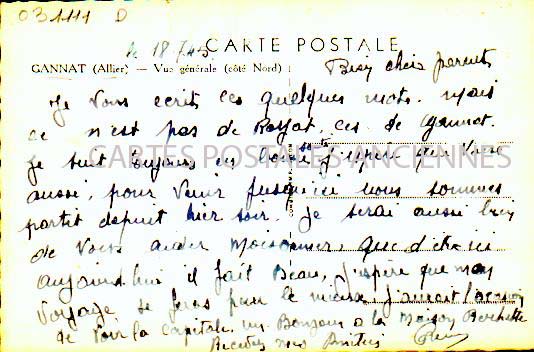 031111 D
le 18 7 45
CARTE POSTALE
GANNAT (Allier) — Vue générale (côté Nord)
Bien chers parents
Je vous ecrit ces quelques mots. mais
ce n'est pas de Royat, ces de gannat.
Je suit toujours en bonne santé j'espère que vous
aussi, pour venir jusqu'ici nous sommes
partit depuit hier soir. Je serai aussi bien
de vous aider moissonner, que d'etre ici
aujourd'hui il fait Beau, j'espère que mon
voyage se fera pour le mieux j'aurait l'occasion
de voir la capitale un Bonjour a la maison
Recevez mes Amitiés
CARTES POSTALES ANCIENNES